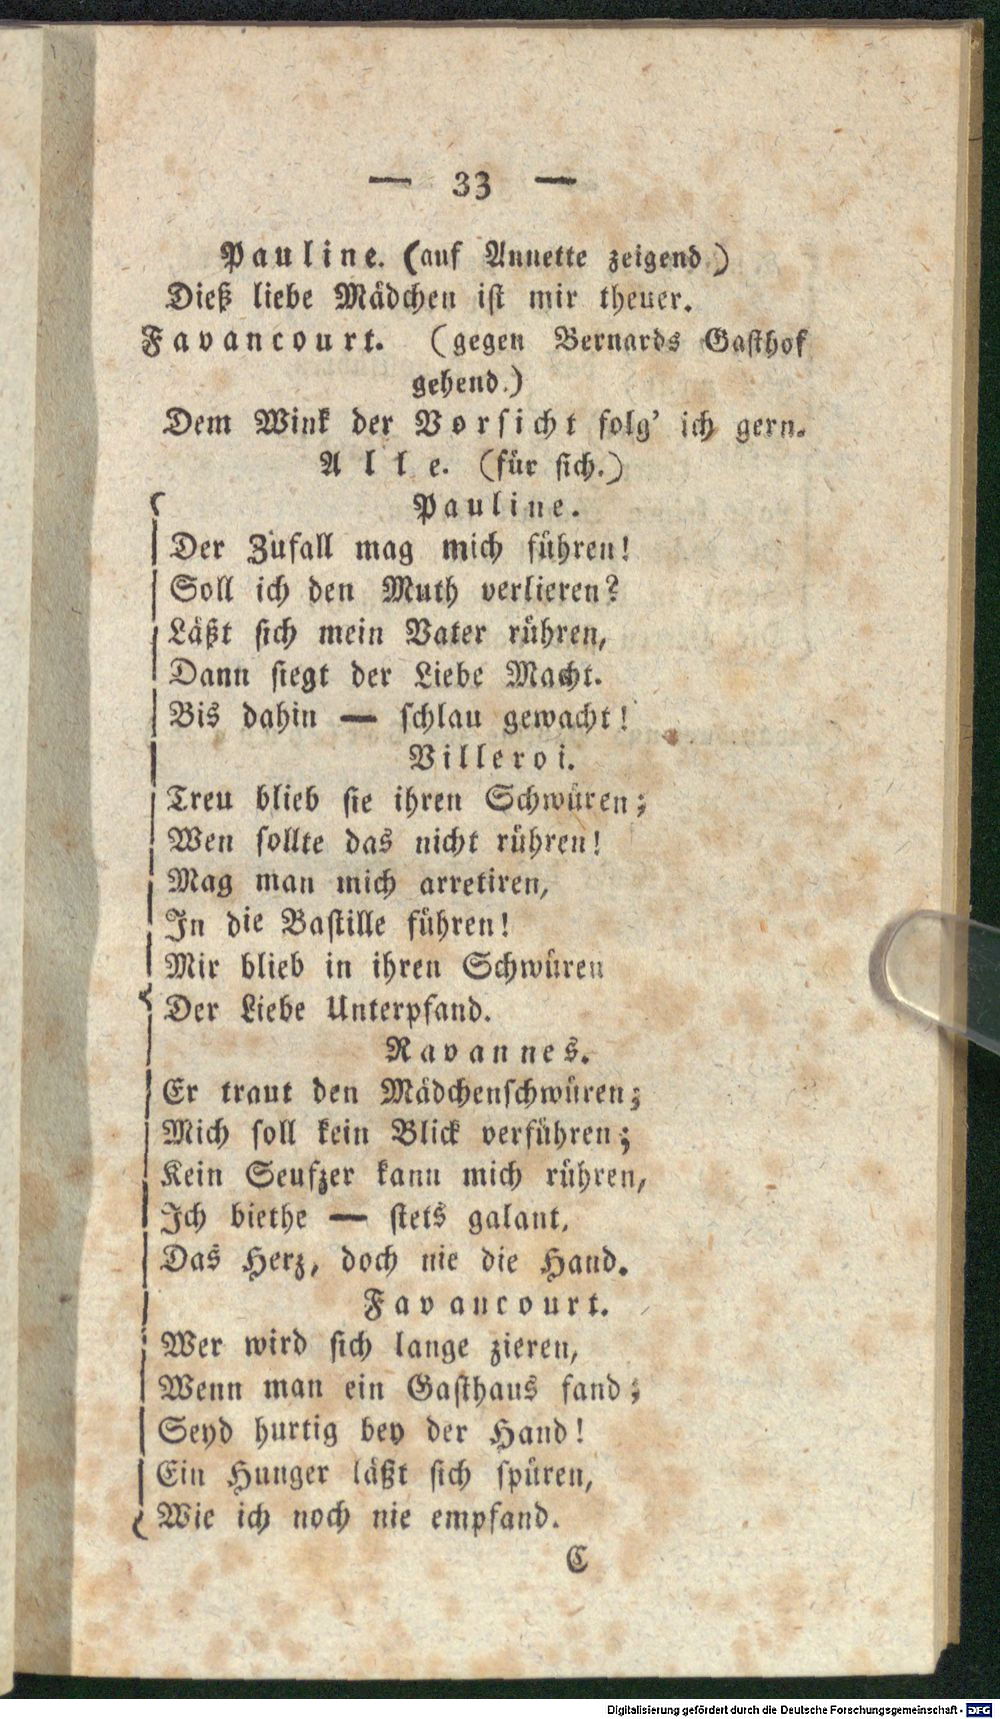 — 33 —
Pauline. (auf Annette zeigend.)
Dieß liebe Mädchen ist mir theuer.
Favancourt. (gegen Bernards Gasthof
gehend.)
Dem Wink der Vorsicht folg' ich gern.
Alle. (für sich.)
Pauline.
Der Zufall mag mich führen!
Soll ich den Muth verlieren?
Läßt sich mein Vater rühren,
Dann siegt der Liebe Macht.
Bis dahin — schlau gewacht!
Villeroi.
Treu blieb sie ihren Schwüren;
Wen sollte das nicht rühren!
Mag man mich arretiren,
In die Bastille führen!
Mir blieb in ihren Schwüren
Der Liebe Unterpfand.
Ravannes.
Er traut den Mädchenschwüren;
Mich soll kein Blick verführen;
Kein Seufzer kann mich rühren,
Ich biethe — stets galant,
Das Herz, doch nie die Hand.
Favancourt.
Wer wird sich lange zieren,
Wenn man ein Gasthaus fand;
Seyd hurtig bey der Hand!
Ein Hunger läßt sich spüren,
Wie ich noch nie empfand.
C
Digitalisierung gefördert durch die Deutsche Forschungsgemeinschaft - DFG